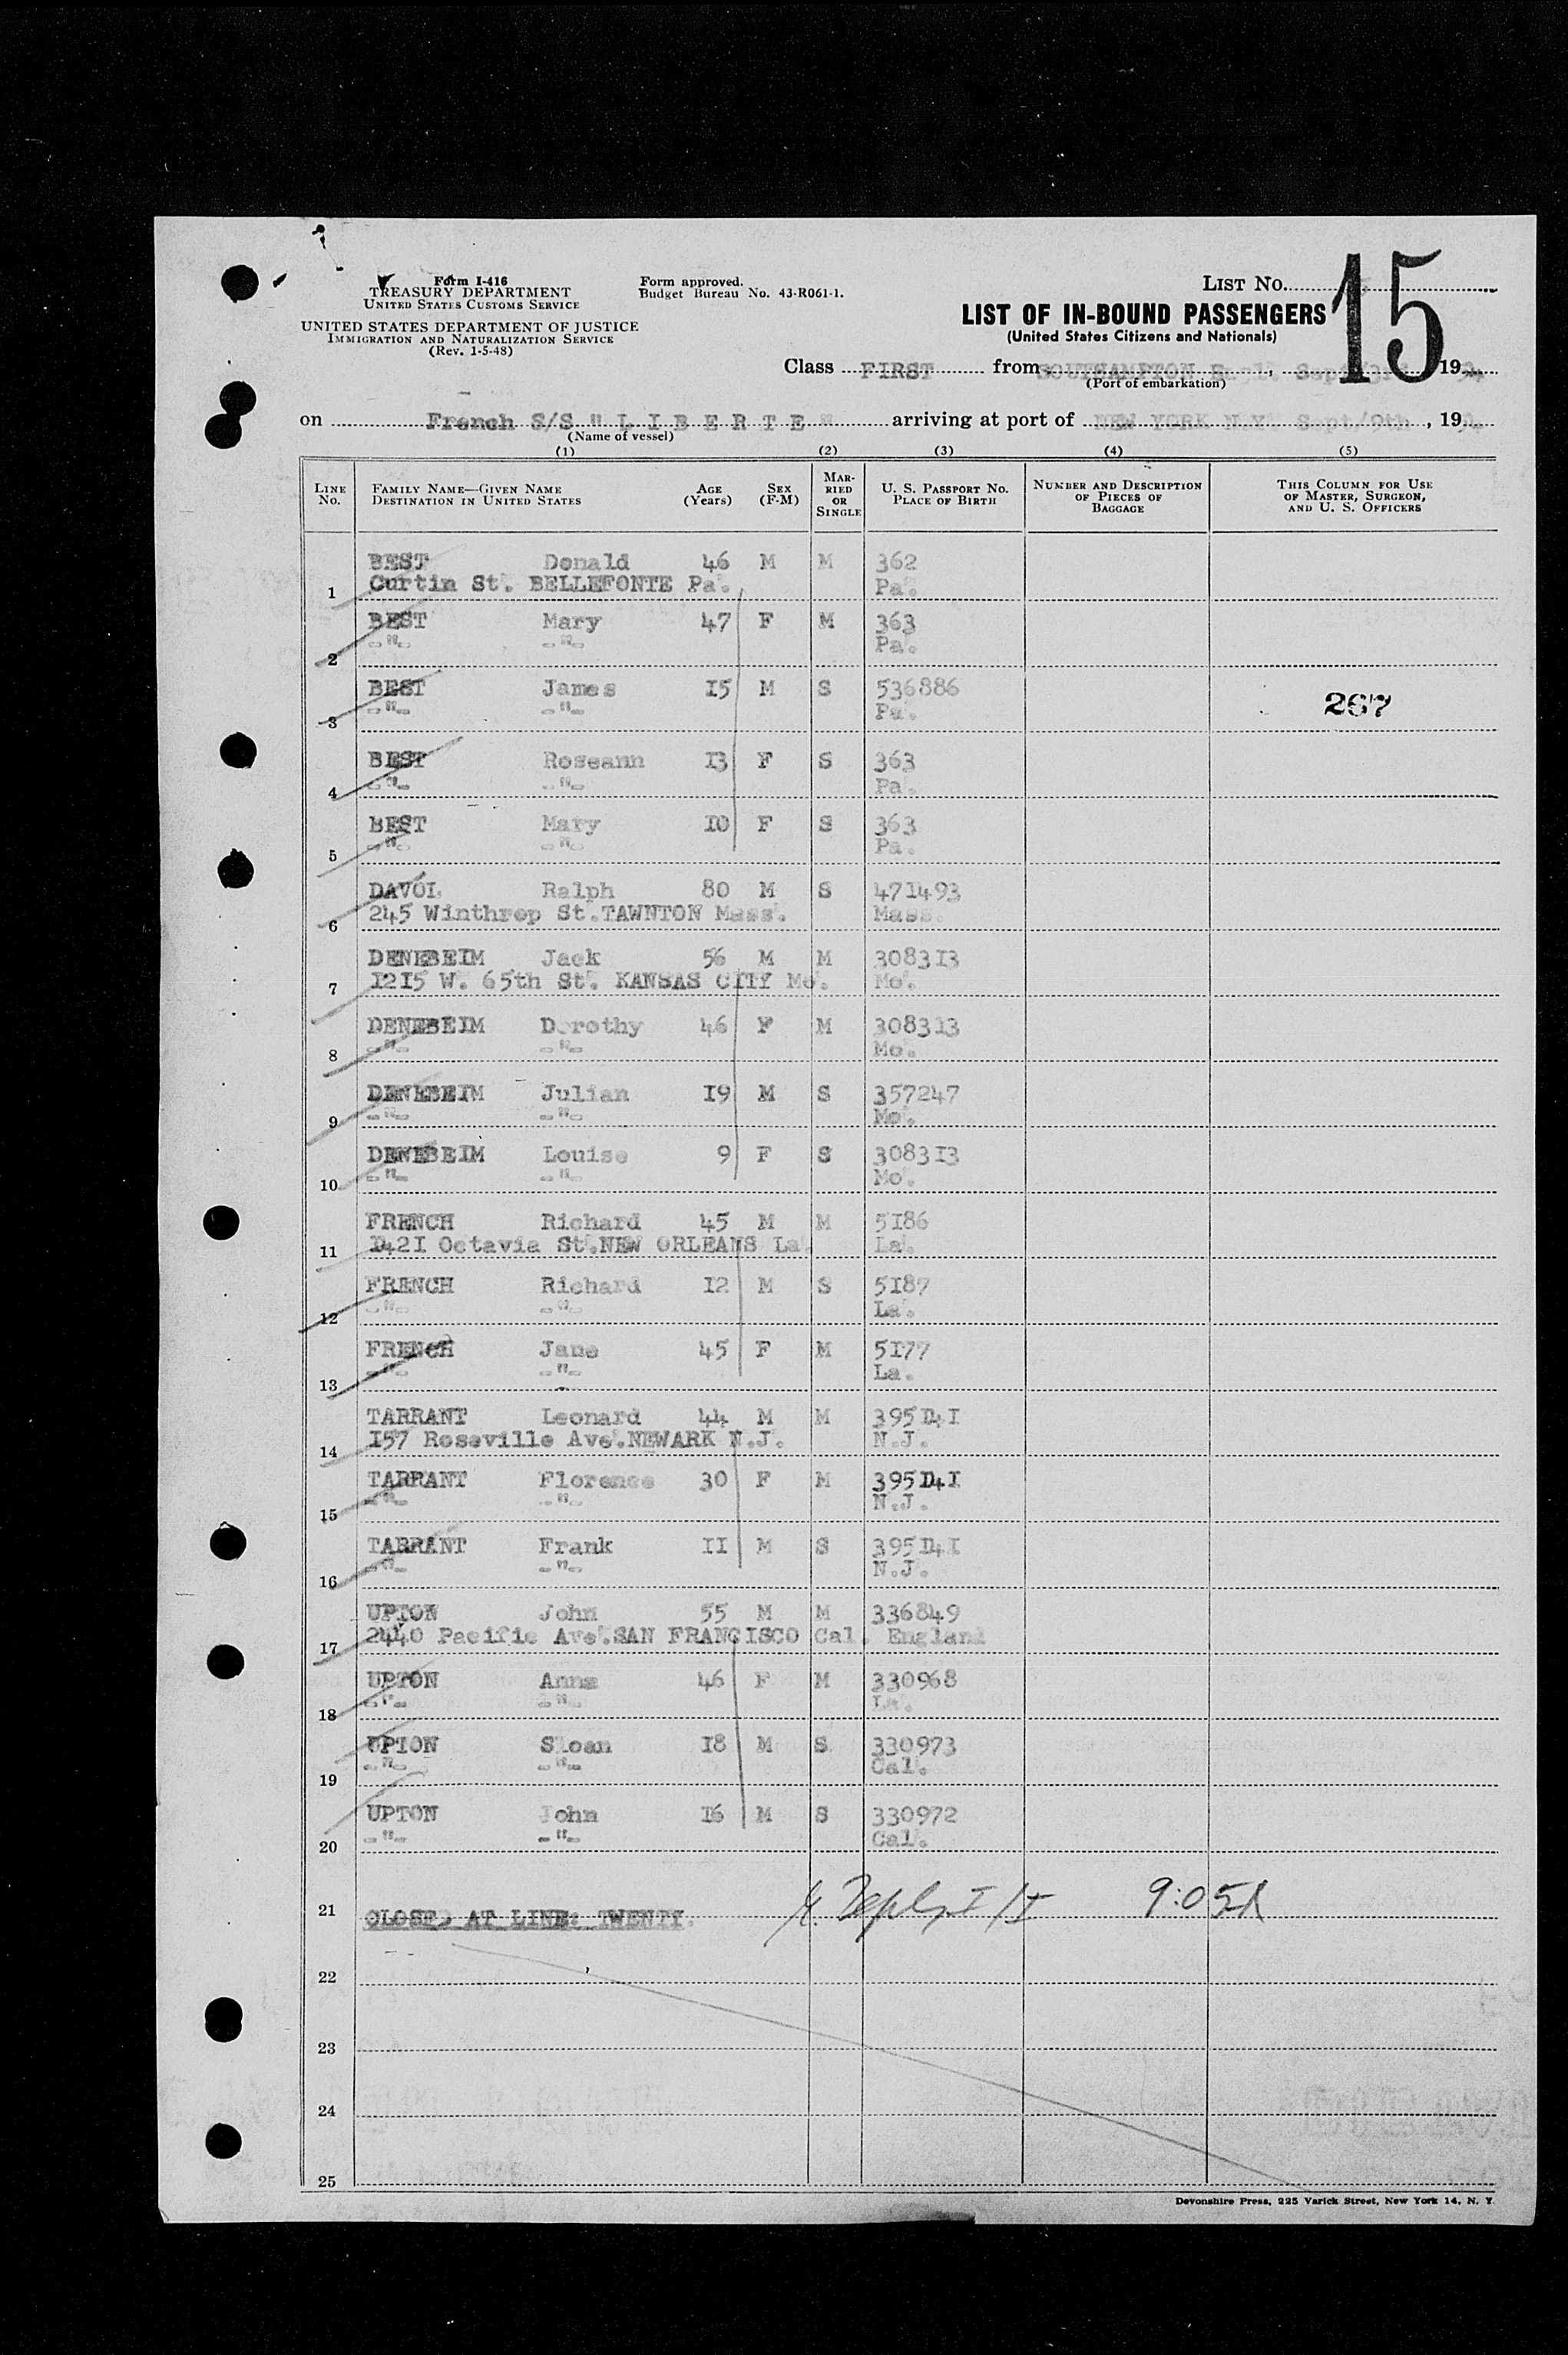 Form I-416
TREASURY DEPARTMENT
UNITED STATES CUSTOMS SERVICE
UNITED STATES DEPARTMENT OF JUSTICE
IMMIGRATION AND NATURALIZATION SERVICE
(Rev. 1-5-48)
Form approved.
Budget Bureau No. 43-R061-1.
LIST NO. 15
LIST OF IN-BOUND PASSENGERS
(United States Citizens and Nationals)
Class FIRST from SOUTHAMPTON Engl. , Sept/3rd 19
(Port of embarkation)
on French S/S " L I B E R T E " arriving at port of NEW YORK N.Y. Sept/9th , 19
(Name of vessel)
(1) (2) (3) (4) (5)
LINE NO. FAMILY NAME—GIVEN NAME DESTINATION IN UNITED STATES AGE (Years) SEX (F-M) MARRIED OR SINGLE U. S. PASSPORT NO. PLACE OF BIRTH NUMBER AND DESCRIPTION OF PIECES OF BAGGAGE THIS COLUMN FOR USE OF MASTER, SURGEON, AND U. S. OFFICERS
BEST Donald 46 M M 362
1 Curtin St. BELLEFONTE Pa. Pa.
BEST Mary 47 F M 363
2 -"- -"- Pa.
BEST James I5 M S 536886
3 -"- -"- Pa. 267
BEST Roseann I3 F S 363
4 -"- -"- Pa.
BEST Mary I0 F S 363
5 -"- -"- Pa.
DAVOL Ralph 80 M S 47I493
6 245 Winthrop St.TAWNTON Mass. Mass.
DENEBEIM Jack 56 M M 3083I3
7 I2I5 W. 65th St. KANSAS CITY Mo. Mo.
DENEBEIM Dorothy 46 F M 3083I3
8 -"- -"- Mo.
DENEBEIM Julian I9 M S 357247
9 -"- -"- Mo.
DENEBEIM Louise 9 F S 3083I3
10 -"- -"- Mo.
FRENCH Richard 45 M M 5I86
11 I42I Octavia St.NEW ORLEANS La. La.
FRENCH Richard I2 M S 5I87
12 -"- -"- La.
FRENCH Jane 45 F M 5I77
13 -"- -"- La.
TARRANT Leonard 44 M M 395I4I
14 I57 Roseville Ave.NEWARK N.J. N.J.
TARRANT Florence 30 F M 395I4I
15 -"- -"- N.J.
TARRANT Frank II M S 395I4I
16 -"- -"- N.J.
UPTON John 55 M M 336849
17 2440 Pacific Ave.SAN FRANCISCO Cal. England
UPTON Anna 46 F M 330968
18 -"- -"- La.
UPTON Sloan I8 M S 330973
19 -"- -"- Cal.
UPTON John I6 M S 330972
20 -"- -"- Cal.
21 CLOSED AT LINE: TWENTY. 9:05A
22
23
24
25
Devonshire Press, 225 Varick Street, New York 14, N. Y.